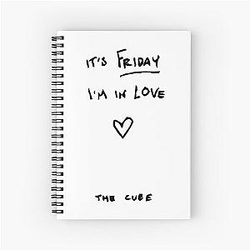 IT'S FRIDAY
I'M IN LOVE
THE CUBE